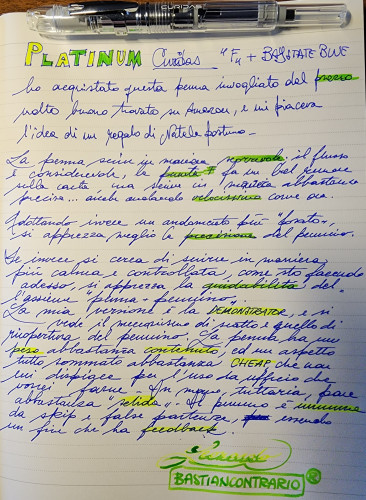 CURIDAS
PLATINUM Curidas - "F" + BAYSTATE BLUE
ho acquistato questa penna invogliato dal prezzo
molto buono trovato su Amazon, e mi piaceva
l'idea di un regalo di Natale postumo -
La penna scrive in maniera scorrevole: il flusso
è considerevole, la punta F fa un bel rumore
sulla carta, ma scrive in maniera abbastanza
precisa... anche andando velocissimo come ora.
Adottando invece un andamento più "posato",
si apprezza meglio la precisione del pennino.
Se invece si cerca di scrivere in maniera
più calma e controllata, come sto facendo
adesso, si apprezza la guidabilità del-
l'assieme "penna + pennino".
La mia versione è la DEMONSTRATOR, e si
vede il meccanismo di scatto e quello di
ricopertura del pennino. La penna ha un
peso abbastanza contenuto, ed un aspetto
tutto sommato abbastanza CHEAP che non
mi dispiace per l'uso da ufficio che
vorrei farne - In mano, tuttavia, pare
abbastanza "solida" - Il pennino è immune
da skip e false partenze, essendo
un fine che ha feedback.
BASTIANCONTRARIO ®